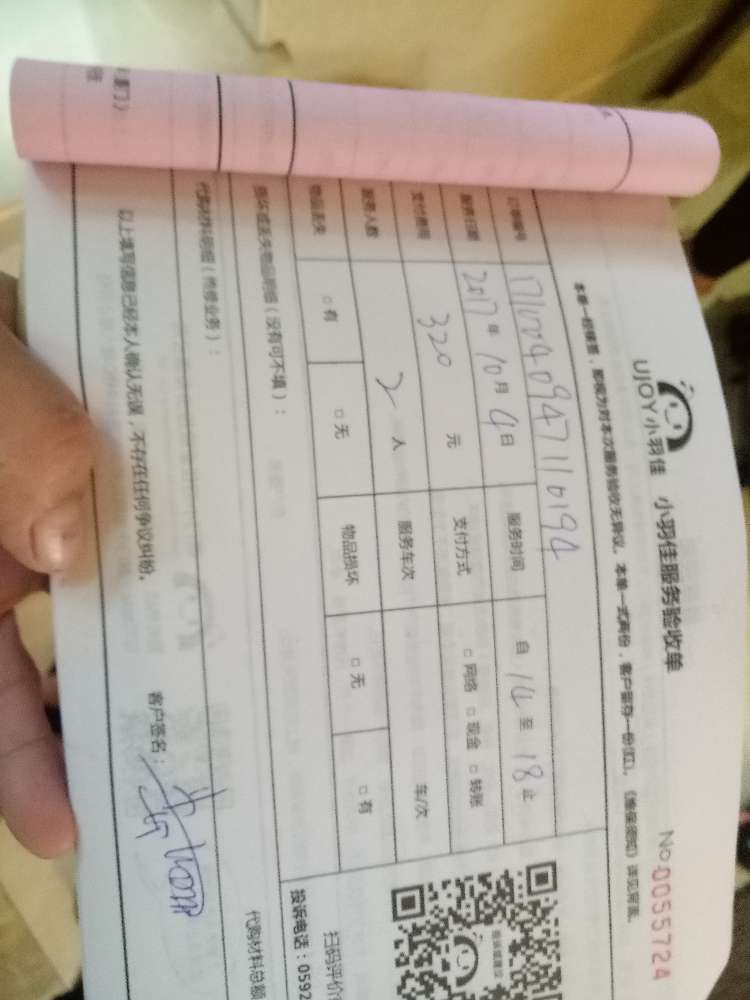 UJOY小羽佳 小羽佳服务验收单 No:0055724
本单一经签署，即视为对本次服务验收无异议。本单一式两份，客户留存一份(红)。《维保须知》详见背面。
订单编号
服务日期 2017年10月4日 服务时间 自14至18止
支付费用 320元 支付方式 □网络 □现金 □转账
服务人数 2人 服务车次 车/次
物品丢失 □有 □无 物品损坏 □无 □有
损坏或丢失物品明细（没有可不填）：
扫码评价
投诉电话：0592
代购材料明细（维修业务）：
代购材料总额
以上填写信息已经本人确认无误，不存在任何争议纠纷。 客户签名：